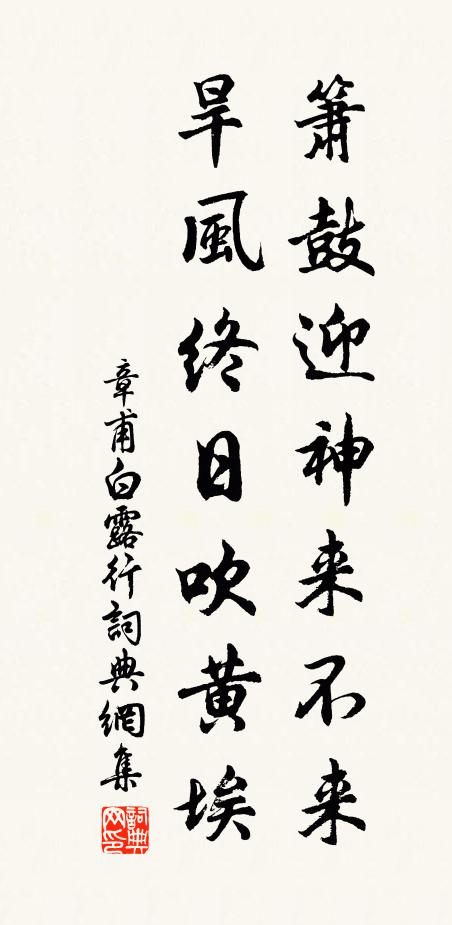 簫鼓迎神来不来
旱風終日吹黄埃
章甫白露行詞典網集
詞典網印